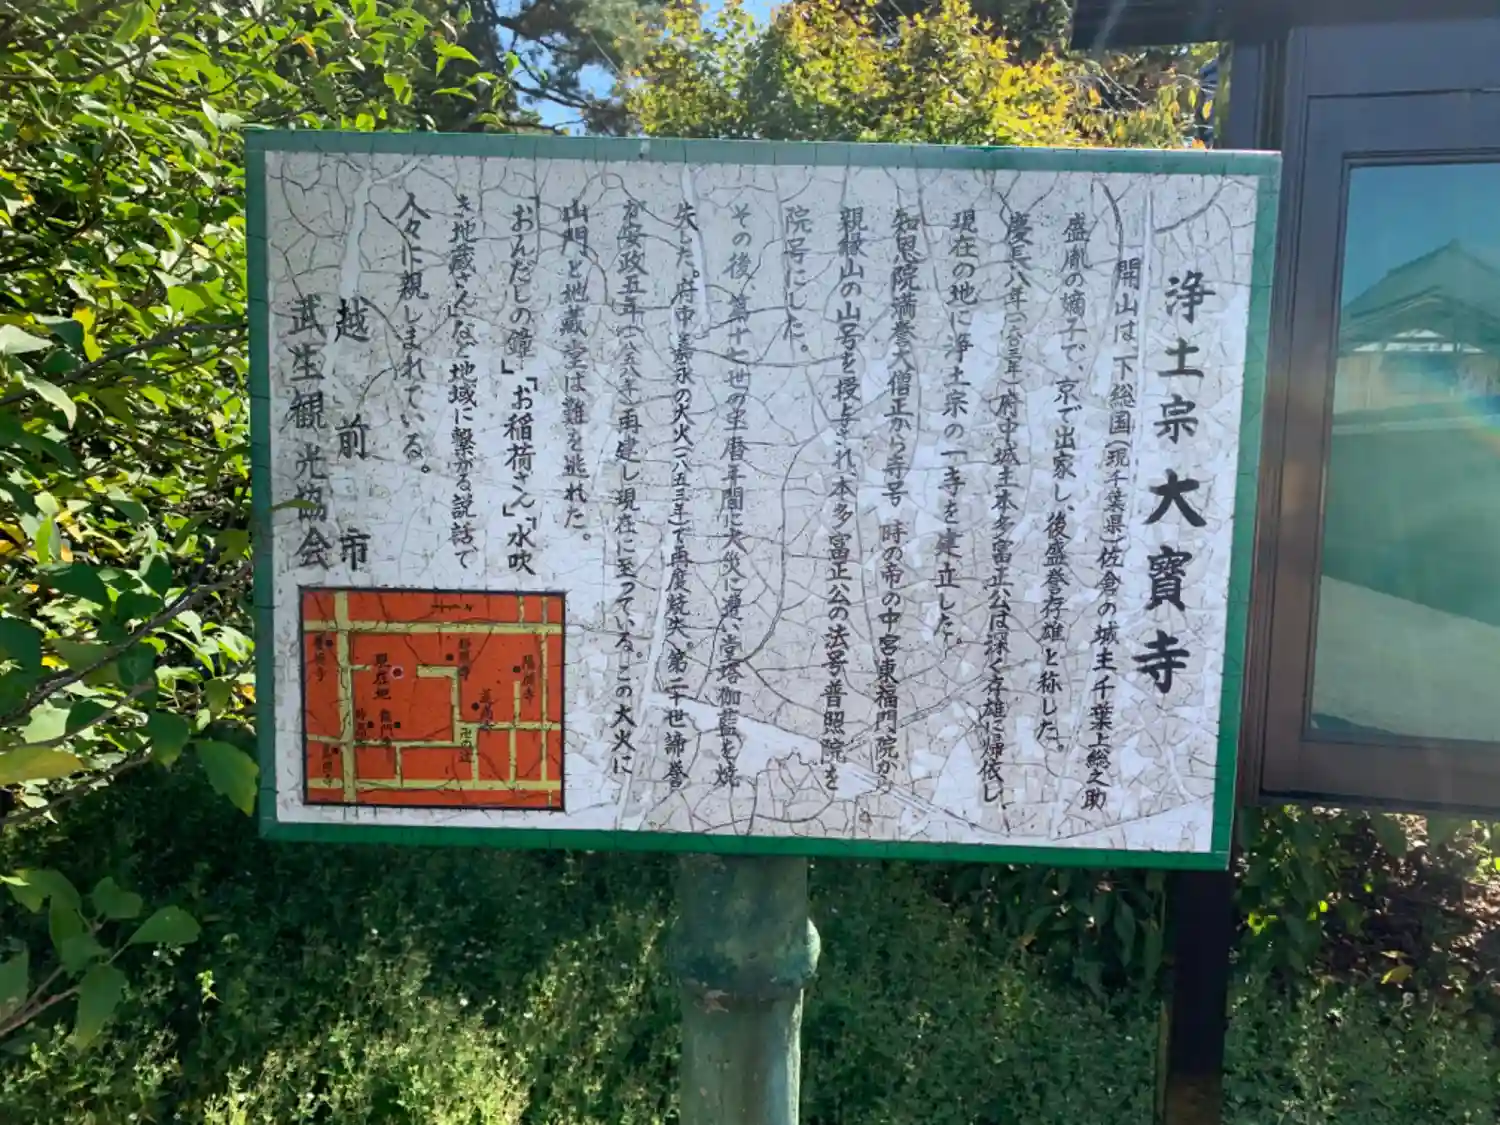 浄土宗 大寳寺
開山は、下総国(現千葉県)佐倉の城主千葉上総之助
盛胤の嫡子で、京で出家し、後盛誉存雄と称した。
慶長八年(一六〇三年)府中城主本多富正公は深く存雄に帰依し
現在の地に浄土宗の一寺を建立した。
知恩院満誉大僧正から寺号 時の帝の中宮東福門院から
親縁山の山号を授与され、本多富正公の法号普照院を
院号にした。
その後 第十七世の宝暦年間に火災に遭い、堂塔伽藍を焼
失した。府中嘉永の大火(一八五三年)で再度焼失。第二十世諦誉
が安政五年(一八五八年)再建し現在に至っている。この大火に
山門と地蔵堂は難を逃れた。
「おんだしの鐘」「お稲荷さん」「水吹
き地蔵さん」など地域に繋がる説話で
人々に親しまれている。
越前市
武生観光協会
現在地
龍門寺
陽願寺
卍の辻